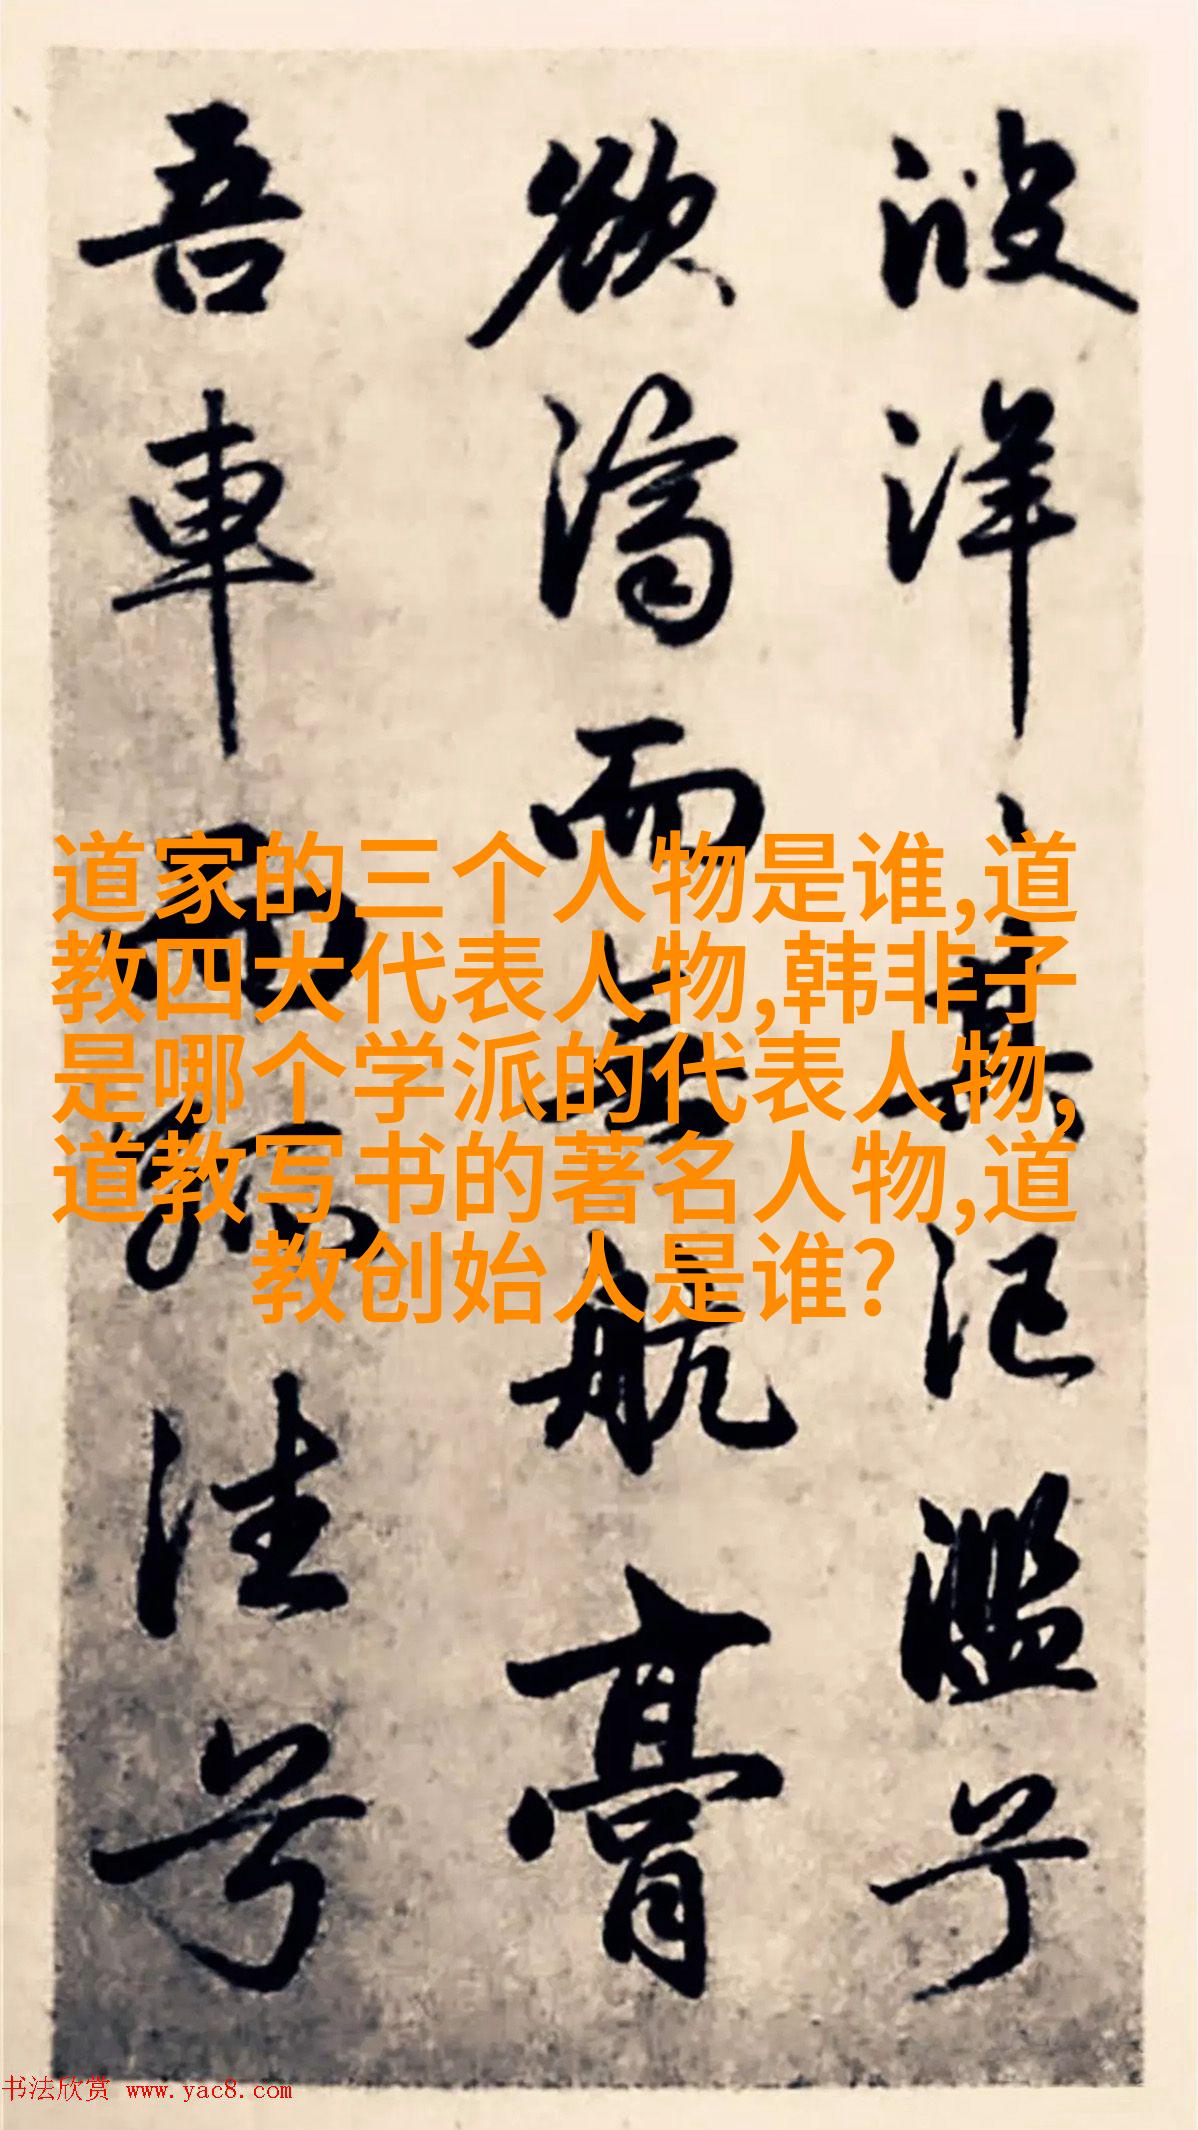 波洋其氾濫兮
欲濟而無航膏
吾車而兮
道家的三个人物是谁,道
教四大代表人物,韩非子
是哪个学派的代表人物,
道教写书的著名人物,道
教创始人是谁?
书法欣赏 www.yac8.com